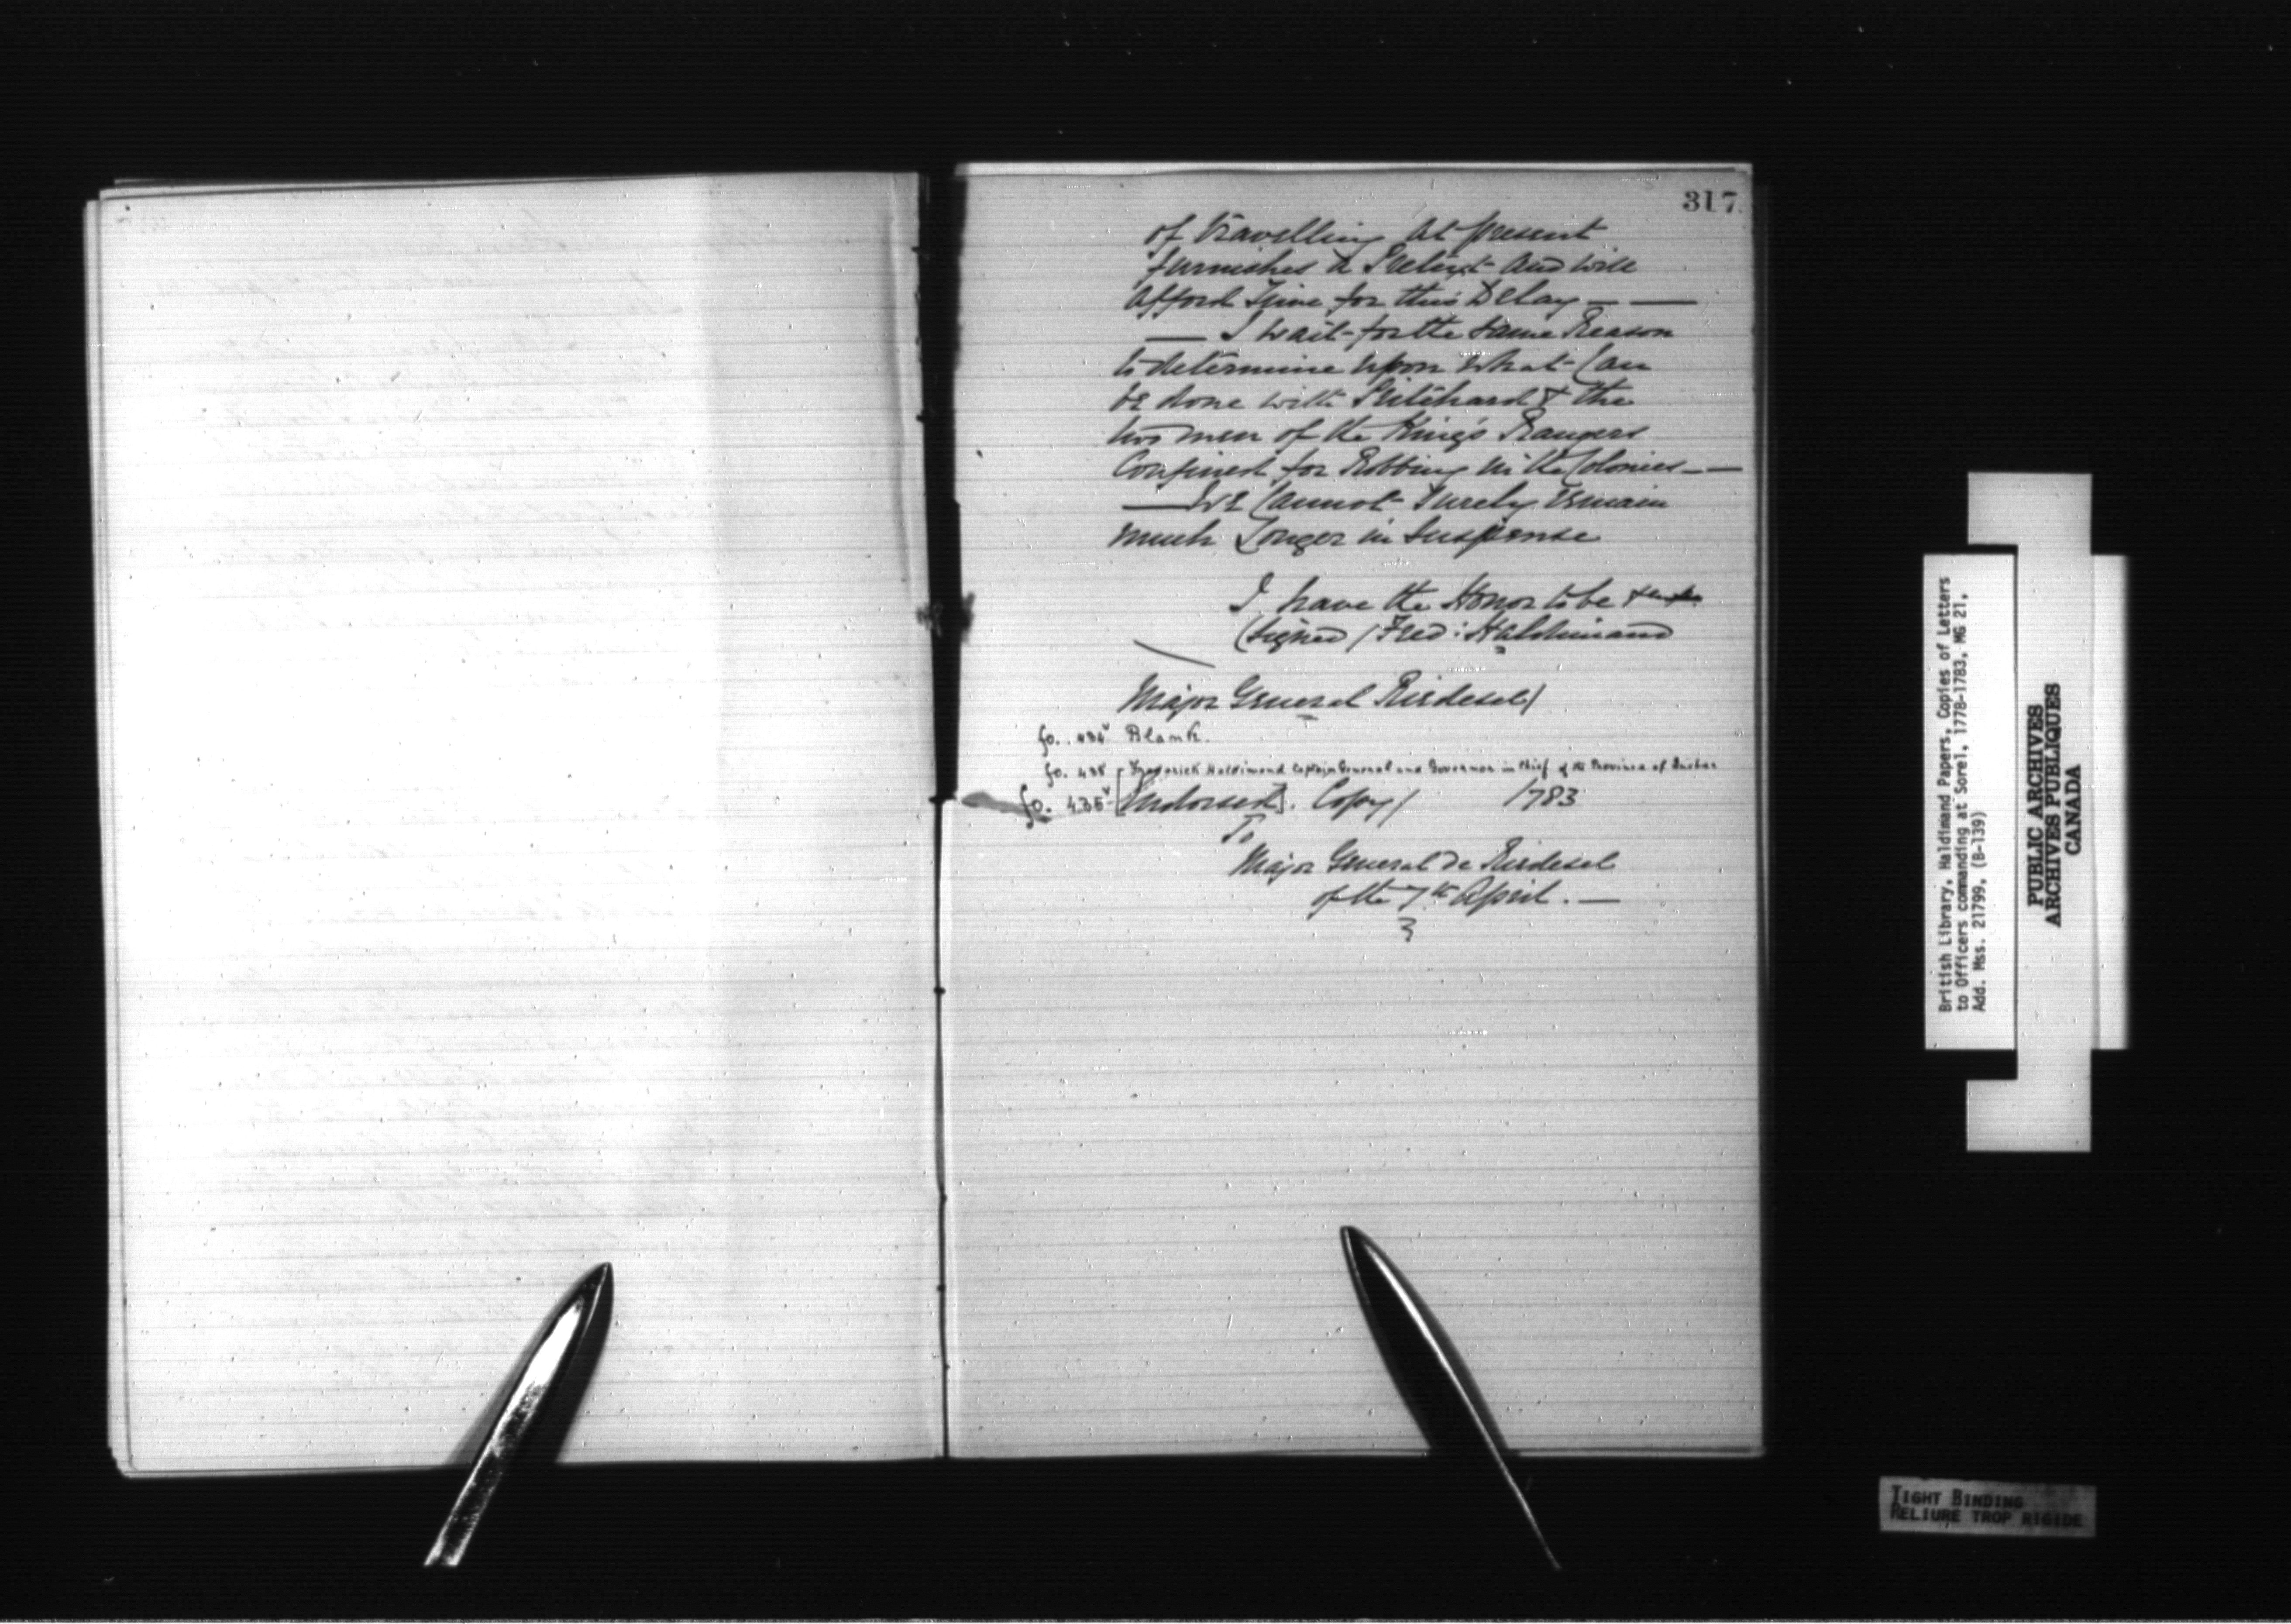 317
of travelling at present
furnishes a Pretext and will
afford Time for this Delay — —
— I wait for the same Reason
to determine upon what Can
be done with Pritchard & the
two men of the King's Rangers
Confined for Robbing in the Colonies — —
— We Cannot surely remain
much Longer in suspense
I have the Honor to be
(signed / Fred: Haldimand
Major General Riedesel /
fo. 434v Blank.
fo. 435 [Frederick Haldimand Captain General and Governor in Chief of the Province of Quebec
fo. 435v [Endorsed]. Copy / 1783
To
Major General de Riedesel
of the 7th April. —
3
British Library, Haldimand Papers, Copies of Letters
to Officers commanding at Sorel, 1778-1783, MG 21,
Add. Mss. 21799, (B-139)
PUBLIC ARCHIVES
ARCHIVES PUBLIQUES
CANADA
TIGHT BINDING
RELIURE TROP RIGIDE